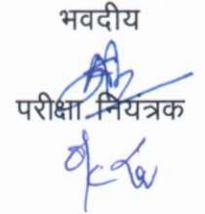 भवदीय
परीक्षा नियंत्रक